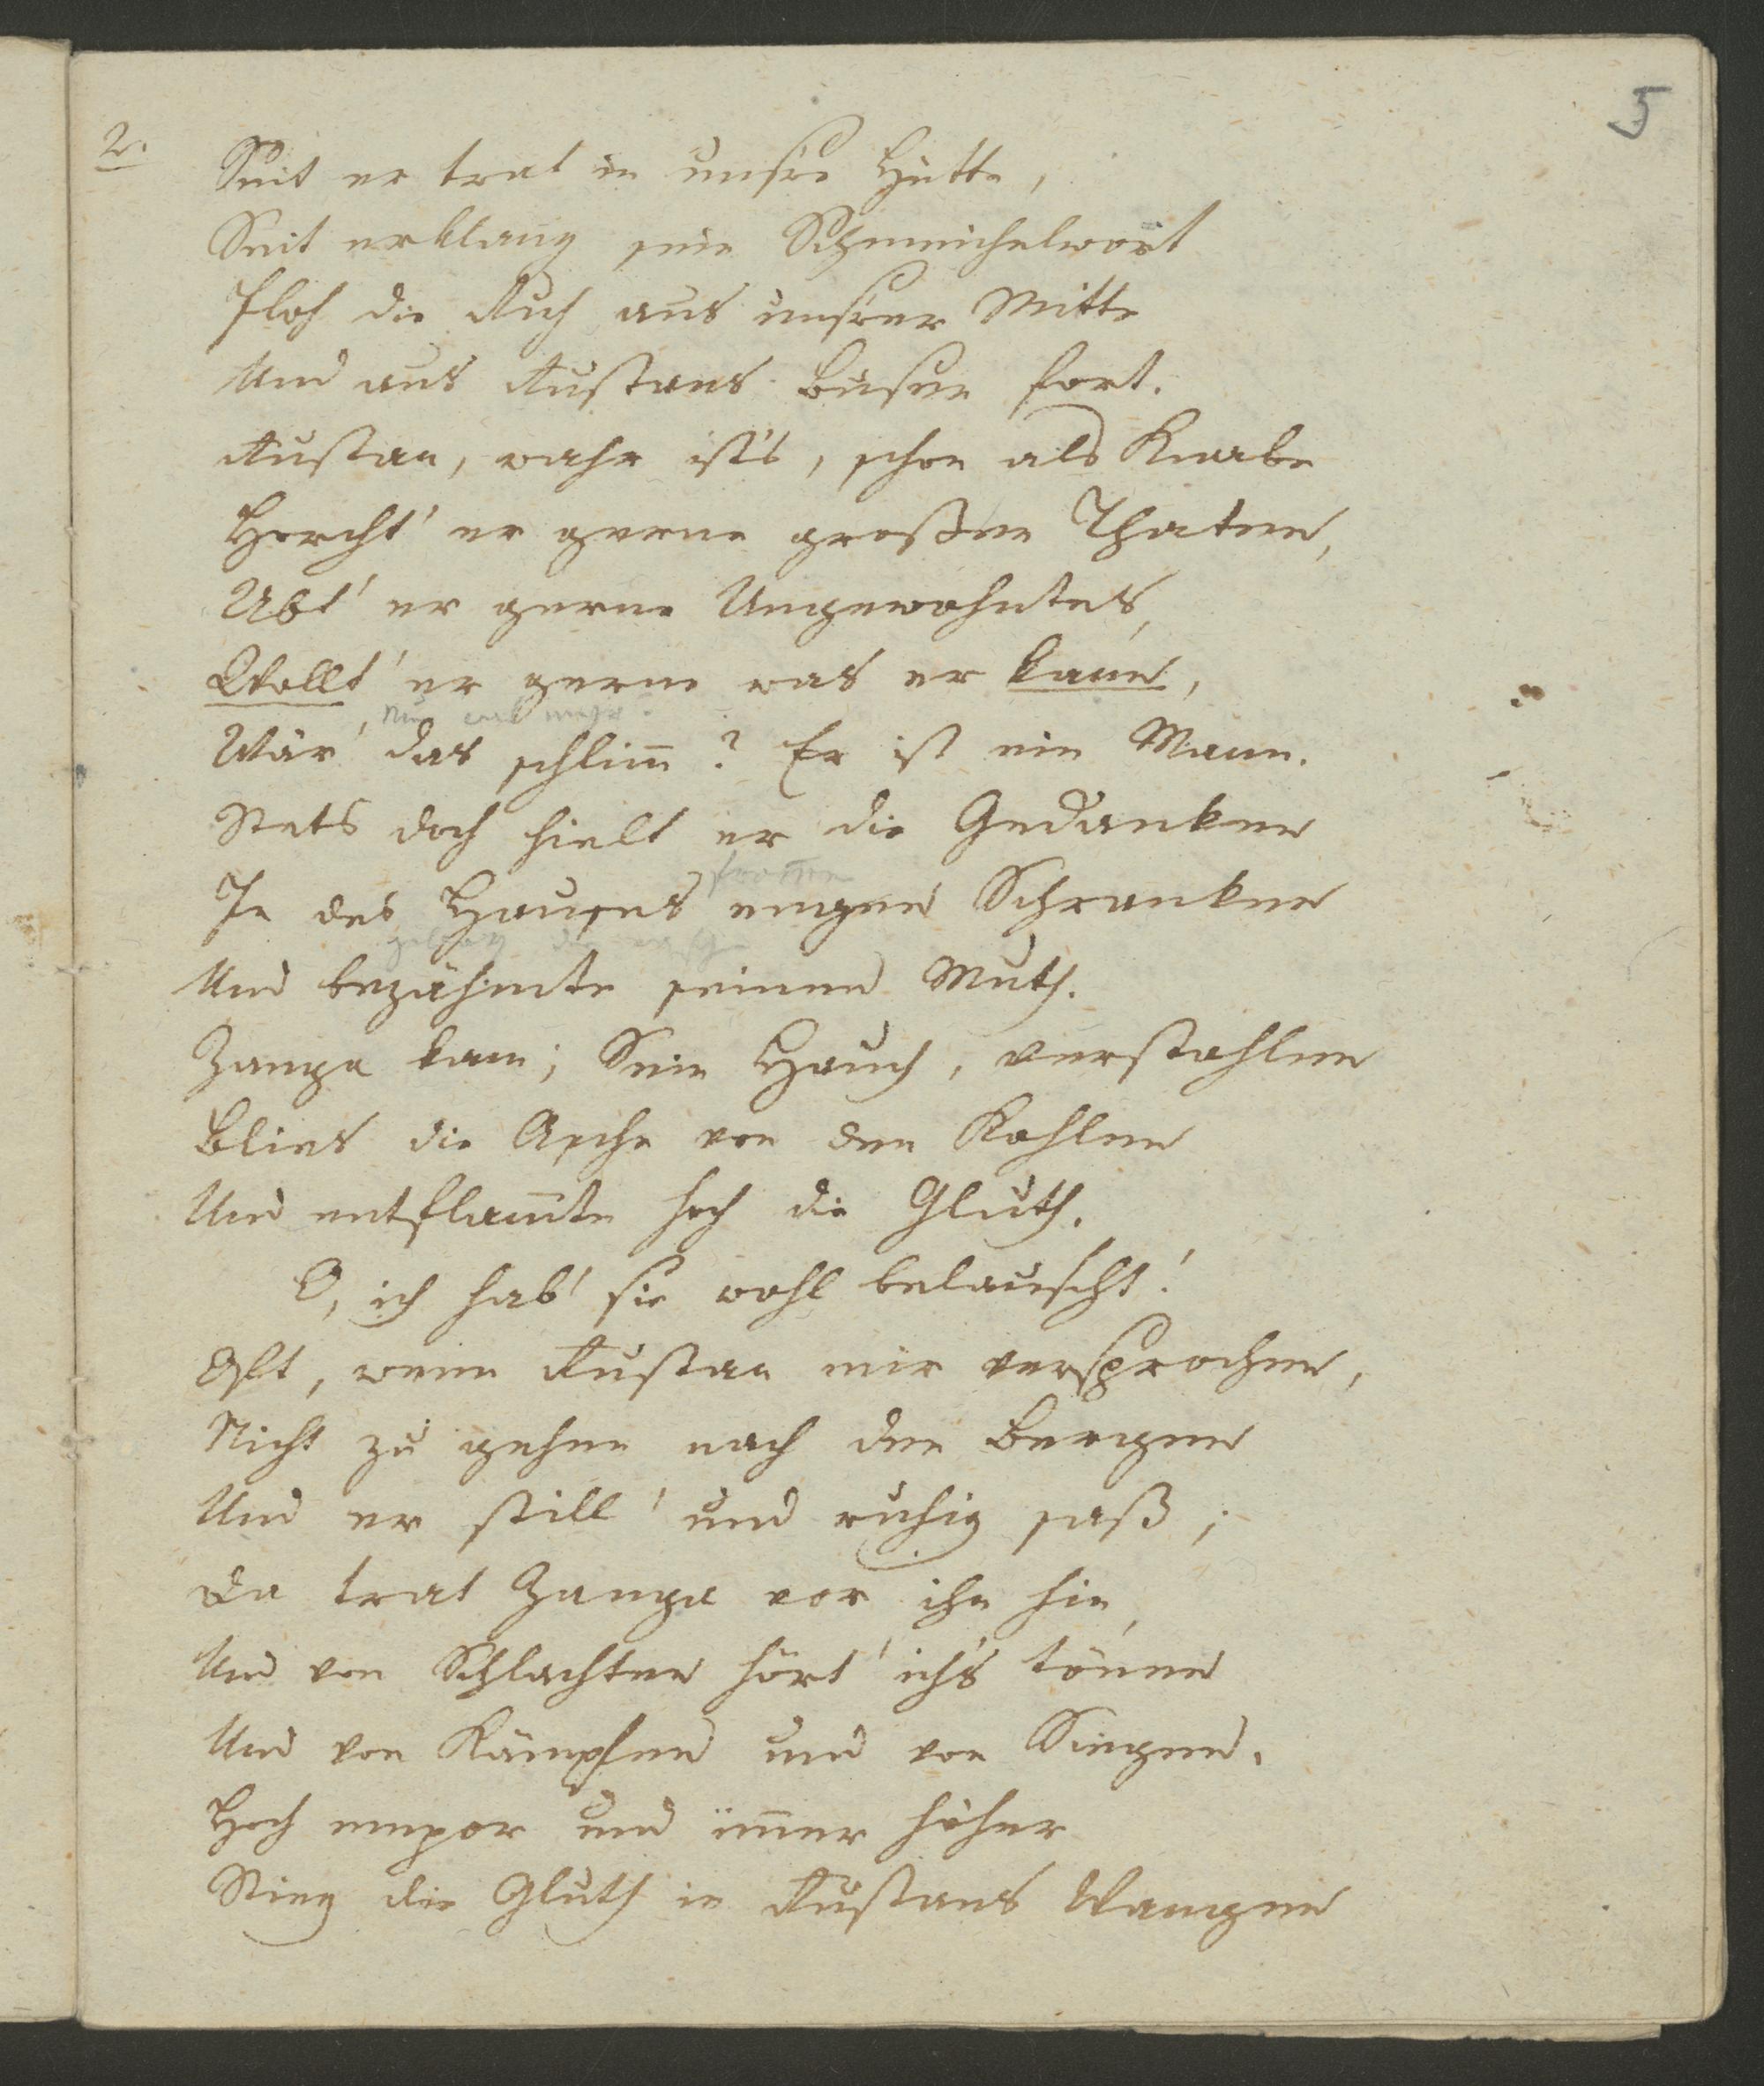 5
2. Seit er trat in unsre Hütte,
Seit erklang sein Schmeichelwort
Floh die Ruh aus unsrer Mitte
Und aus Rustans Busen fort.
Rustan, wahr ist's, schon als Knabe
Horcht' er gerne großen Thaten,
Übt' er gerne Ungewohntes,
Wollt' er gerne was er kann,
Wär' das schlim̅? Er ist ein Mann.
Stets doch hielt er die Gedanken
from̅en
In des Hauses engen Schranken
Und bezähmte seinen Muth.
Zanga kam; Sein Hauch, verstohlen
Blies die Asche von den Kohlen
Und entflam̅te hoch die Gluth.
O, ich hab' sie wohl belauscht!
Oft, wenn Rustan mir versprochen,
Nicht zu gehen nach den Bergen
Und er still' und ruhig saß;
Da trat Zanga vor ihn hin,
Und von Schlachten hört' ich's tönen
Und von Kämpfen und von Siegen.
Hoch empor und im̅er höher
Stieg die Gluth in Rustans Wangen